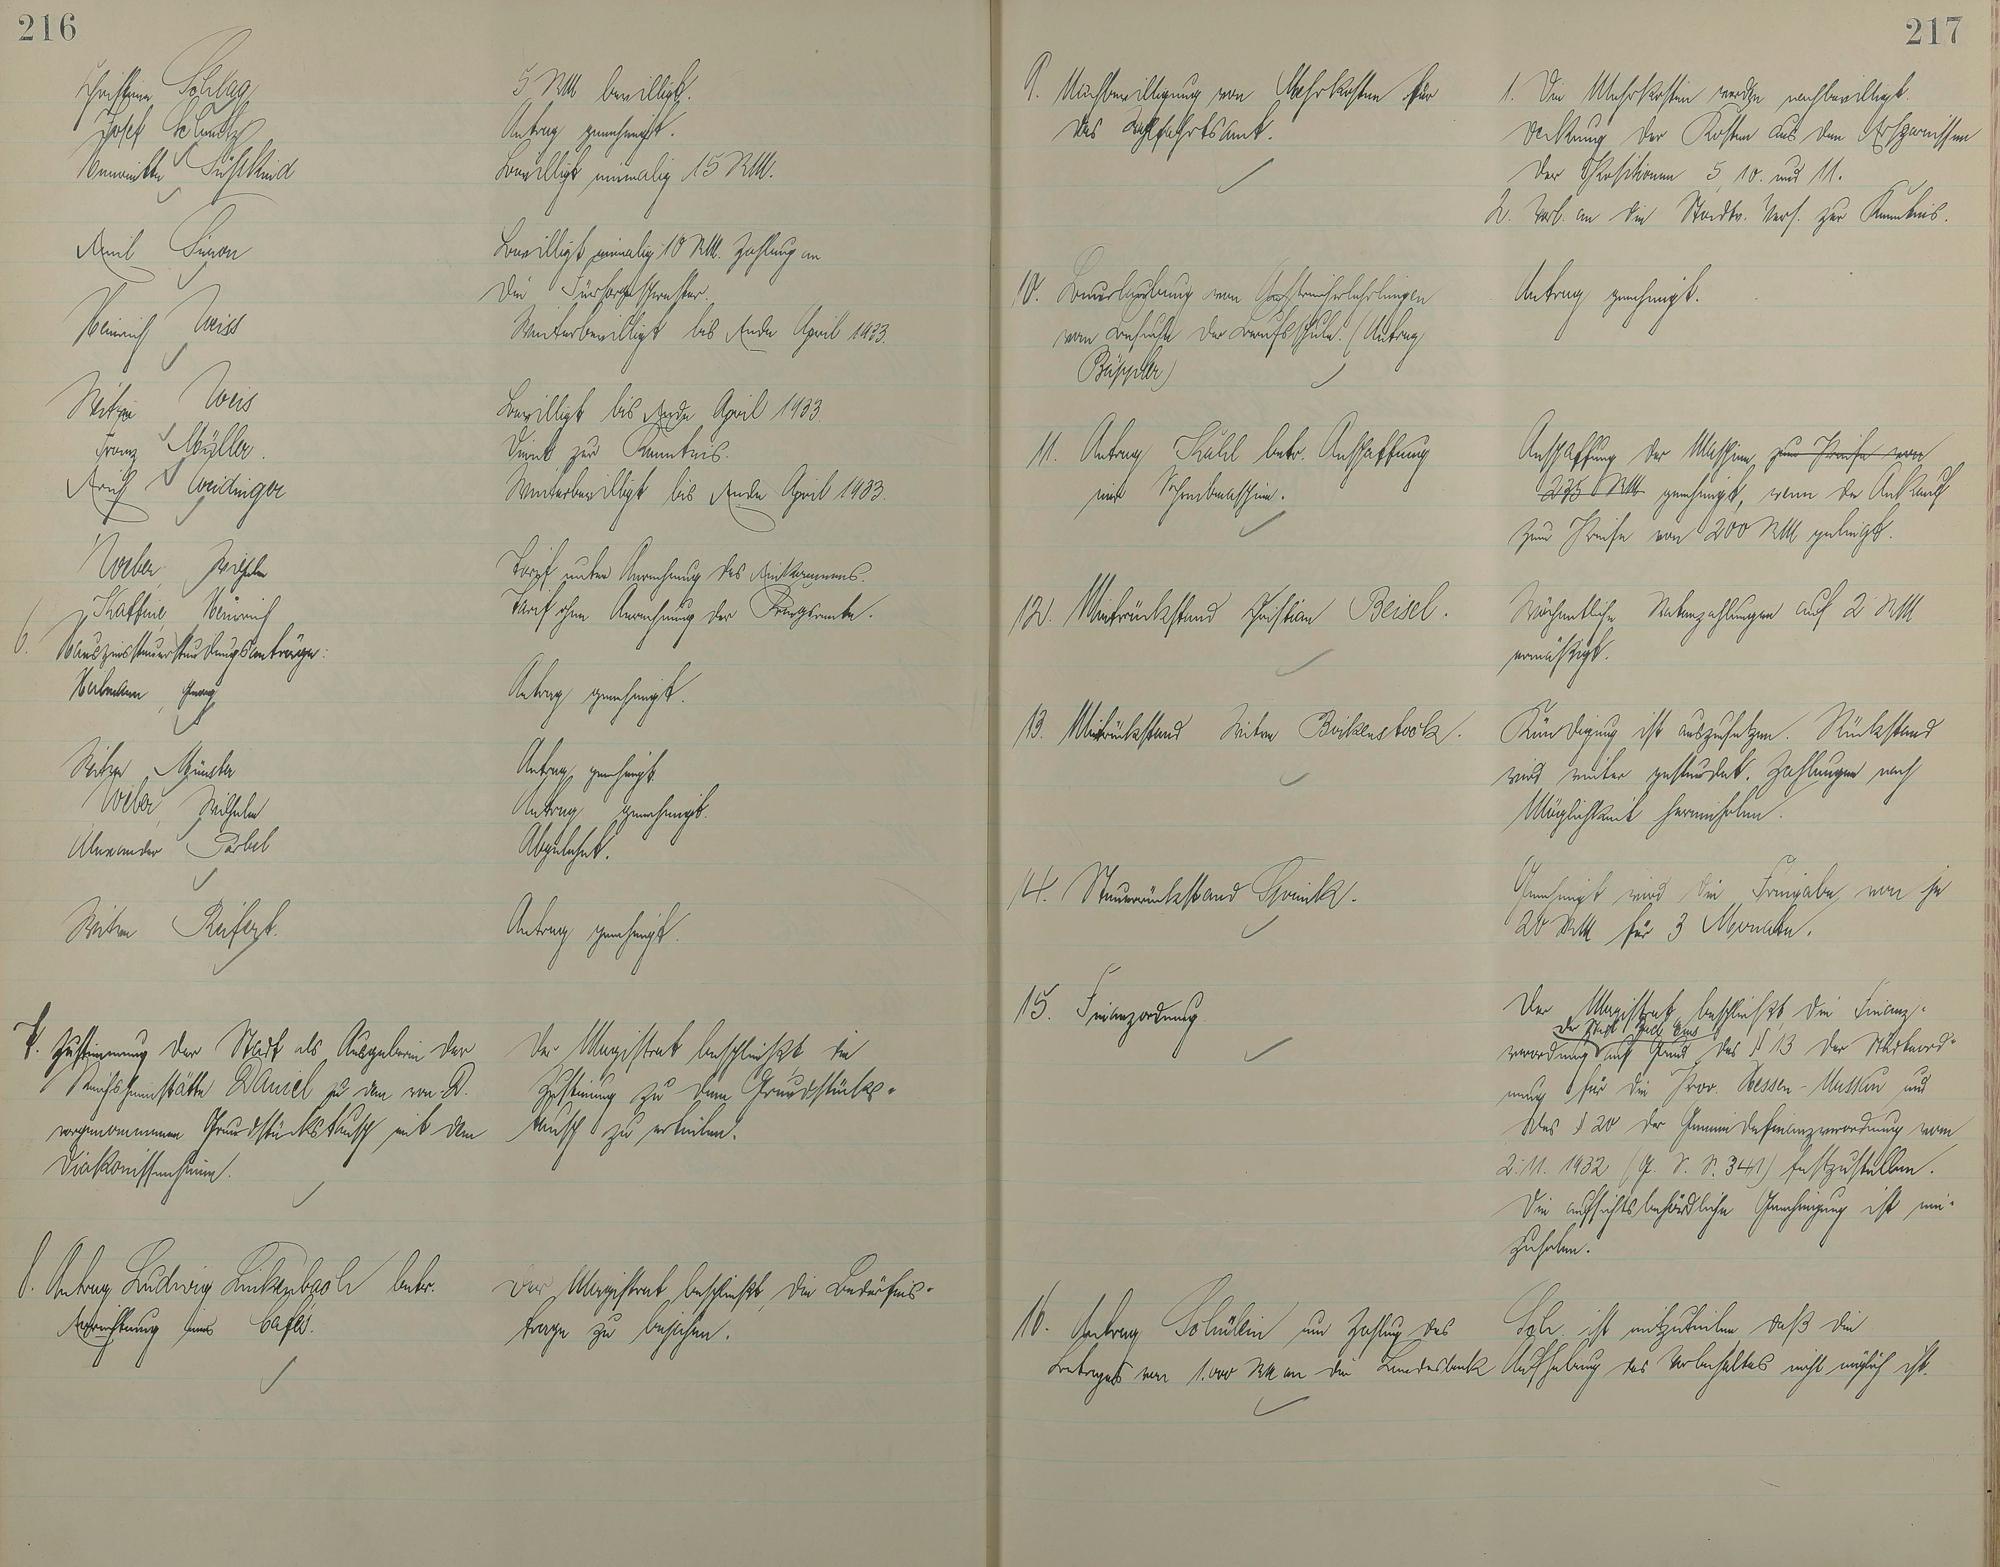 216
Christine Schlag
5 RM bewilligt.
Josef Schmitz
Antrag genehmigt.
Henriette Süßkind
Bewilligt einmalig 15 RM.
Emil Simon
Bewilligt einmalig 10 RM. Zahlung an
die Fürsorgeschwester.
Heinrich Weiss
Weiterbewilligt bis Ende April 1933.
Witwe Weis
Bewilligt bis Ende April 1933
Franz Müller.
Dient zur Kenntnis.
Weidinger
Weiterbewilligt bis Ende April 1933.
Weber, Wilhelm
Tarif unter Anrechnung des Einkommens.
Kaffine Heinrich
Tarif ohne Anrechnung der Kriegsrente.
6. Hauszinssteuerstundungsanträge:
Heilmann, Georg
Antrag genehmigt.
Witwe Münster
Antrag genehmigt.
Weber, Wilhelm
Antrag genehmigt.
Alexander Pärbel
Abgelehnt.
Witwe Reifert.
Antrag genehmigt.
7. Zustimmung der Stadt als Ausgeberin der
Reichsheimstätte Daniel zu dem von D.
vorgenommenen Grundstückstausch mit dem
Diakonissenheim.
Der Magistrat beschließt die
Zustimmung zu dem Grundstücks-
tausch zu erteilen.
8. Antrag Ludwig Linkenbach betr.
Errichtung eines Cafés.
Der Magistrat beschließt, die Bedürfnis-
frage zu bejahen.
217
9. Nachbewilligung von Mehrkosten für
das Wohlfahrtsamt.
1. Die Mehrkosten werden nachbewilligt.
Deckung der Kosten aus den Ersparnissen
der Positionen 5, 10. und 11.
2. Vorl. an die Stadtv. Vers. zur Kenntnis.
10. Beurlaubung von Anstreicherlehrlingen
vom Besuche der Berufsschule. (Antrag
Büppler)
Antrag genehmigt.
11. Antrag Kuhl betr. Anschaffung
einer Schreibmaschine.
Anschaffung der Maschine zum Preise von
235 RM genehmigt, wenn der Ankauf
zum Preise von 200 RM gelingt.
12. Mietrückstand Christian Beisel.
Wöchentliche Ratenzahlungen auf 2 RM
ermäßigt.
13. Mietrückstand Witwe Birkenstock.
Kündigung ist auszusetzen. Rückstand
wird weiter gestundet. Zahlungen nach
Möglichkeit hereinholen.
14. Steuerrückstand
Genehmigt wird die Freigabe von je
20 RM für 3 Monate.
15. Finanzordnung
Der Magistrat beschließt, die Finanz-
der Stadt Bad Ems
verordnung auf Grund des § 13 der Städteord-
nung für die Prov. Hessen-Nassau und
des § 20 der Gemeindefinanzverordnung vom
2.11.1932 (G. S. S. 341) festzustellen.
Die aufsichtsbehördliche Genehmigung ist ein-
zuholen.
16. Antrag Schüllin um Zahlung des
Betrages von 1.000 RM an die Landesbank
Sch. ist mitzuteilen, daß die
Aufhebung des Vorbehaltes nicht möglich ist.